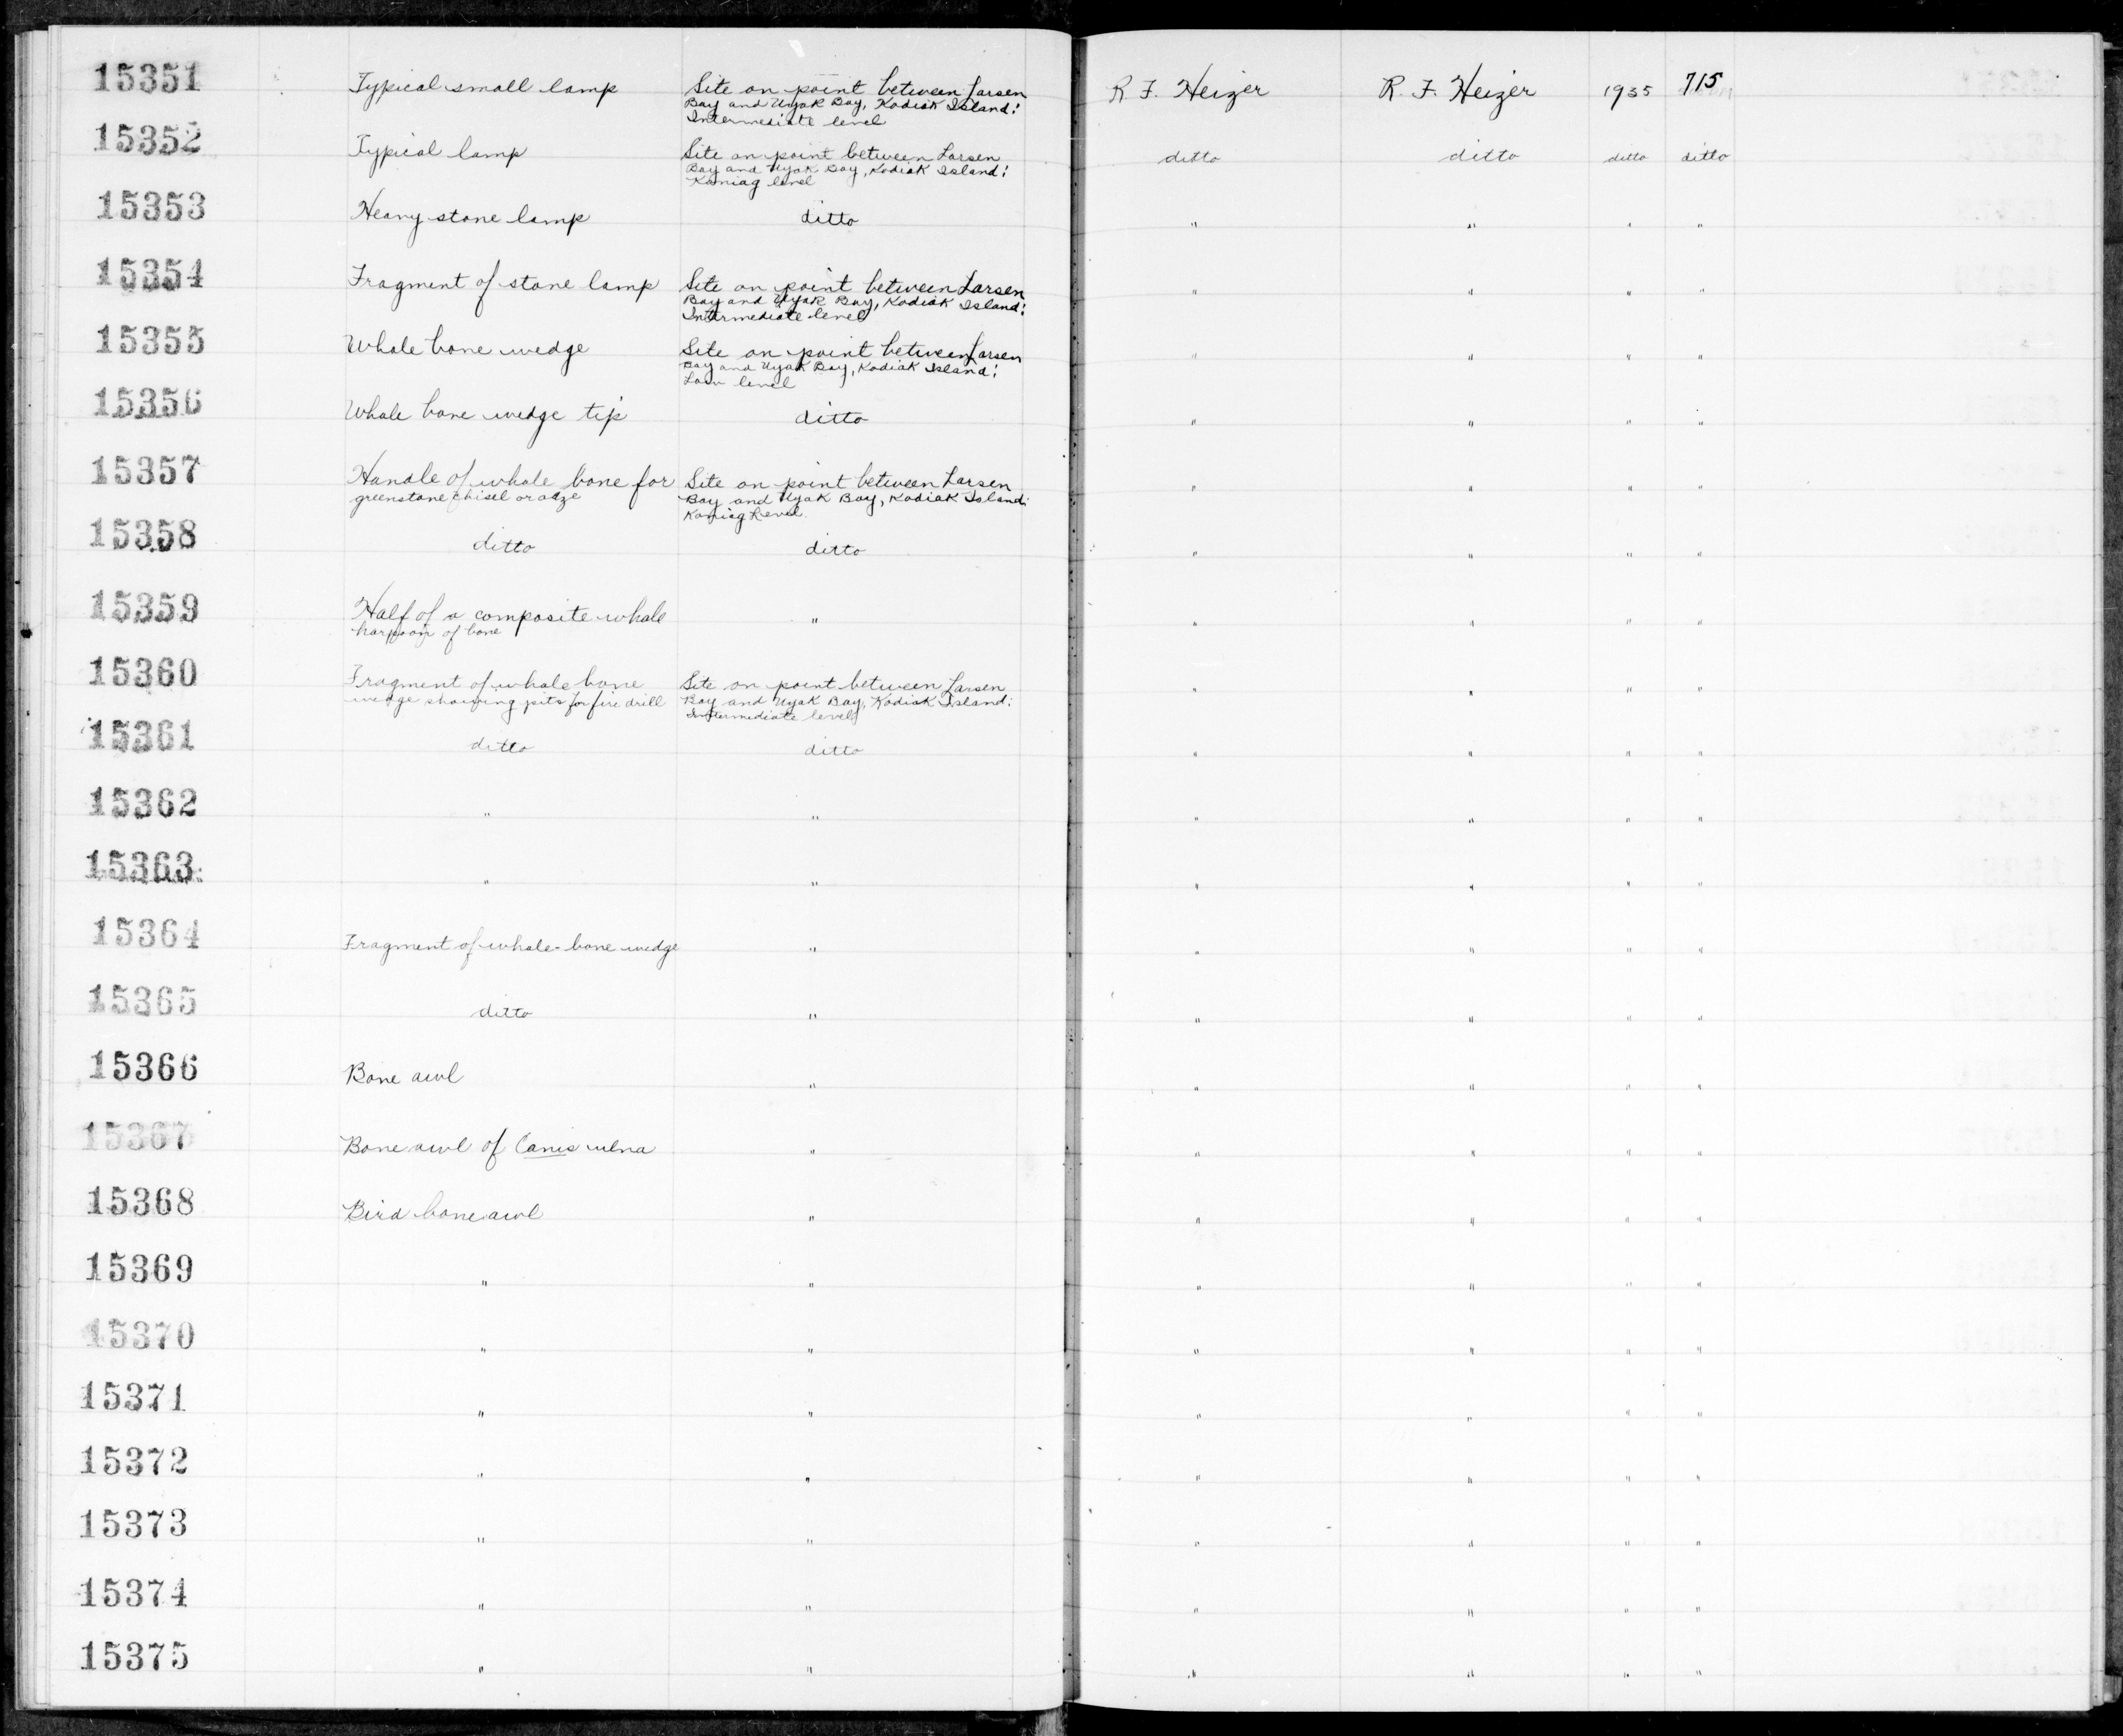 15351 Typical small lamp Site on point between Larsen R. F. Heizer R. F. Heizer 1935 715
Bay and Uyak Bay, Kodiak Island:
Intermediate level
15352 Typical lamp Site on point between Larsen ditto ditto ditto ditto
Bay and Uyak Bay, Kodiak Island:
Koniag level
15353 Heavy stone lamp ditto " " " "
15354 Fragment of stone lamp Site on point between Larsen " " " "
Bay and Uyak Bay, Kodiak Island:
Intermediate level
15355 Whale bone wedge Site on point between Larsen " " " "
Bay and Uyak Bay, Kodiak Island:
Low level
15356 Whale bone wedge tip ditto " " " "
15357 Handle of whale bone for Site on point between Larsen " " " "
greenstone chisel or adze Bay and Uyak Bay, Kodiak Island:
Koniag Level
15358 ditto ditto " " " "
15359 Half of a composite whale " " " " "
harpoon of bone
15360 Fragment of whale bone Site on point between Larsen " " " "
wedge showing pits for fire drill Bay and Uyak Bay, Kodiak Island:
Intermediate level
15361 ditto ditto " " " "
15362 " " " " " "
15363 " " " " " "
15364 Fragment of whale-bone wedge " " " " "
15365 ditto " " " " "
15366 Bone awl " " " " "
15367 Bone awl of Canis ulna " " " " "
15368 Bird bone awl " " " " "
15369 " " " " " "
15370 " " " " " "
15371 " " " " " "
15372 " " " " " "
15373 " " " " " "
15374 " " " " " "
15375 " " " " " "